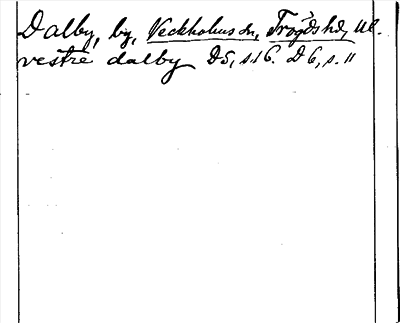 Dalby, by, Veckholms sn, Trögds hd, Ul.
vestre dalby D5, s.16. D6, s. 11